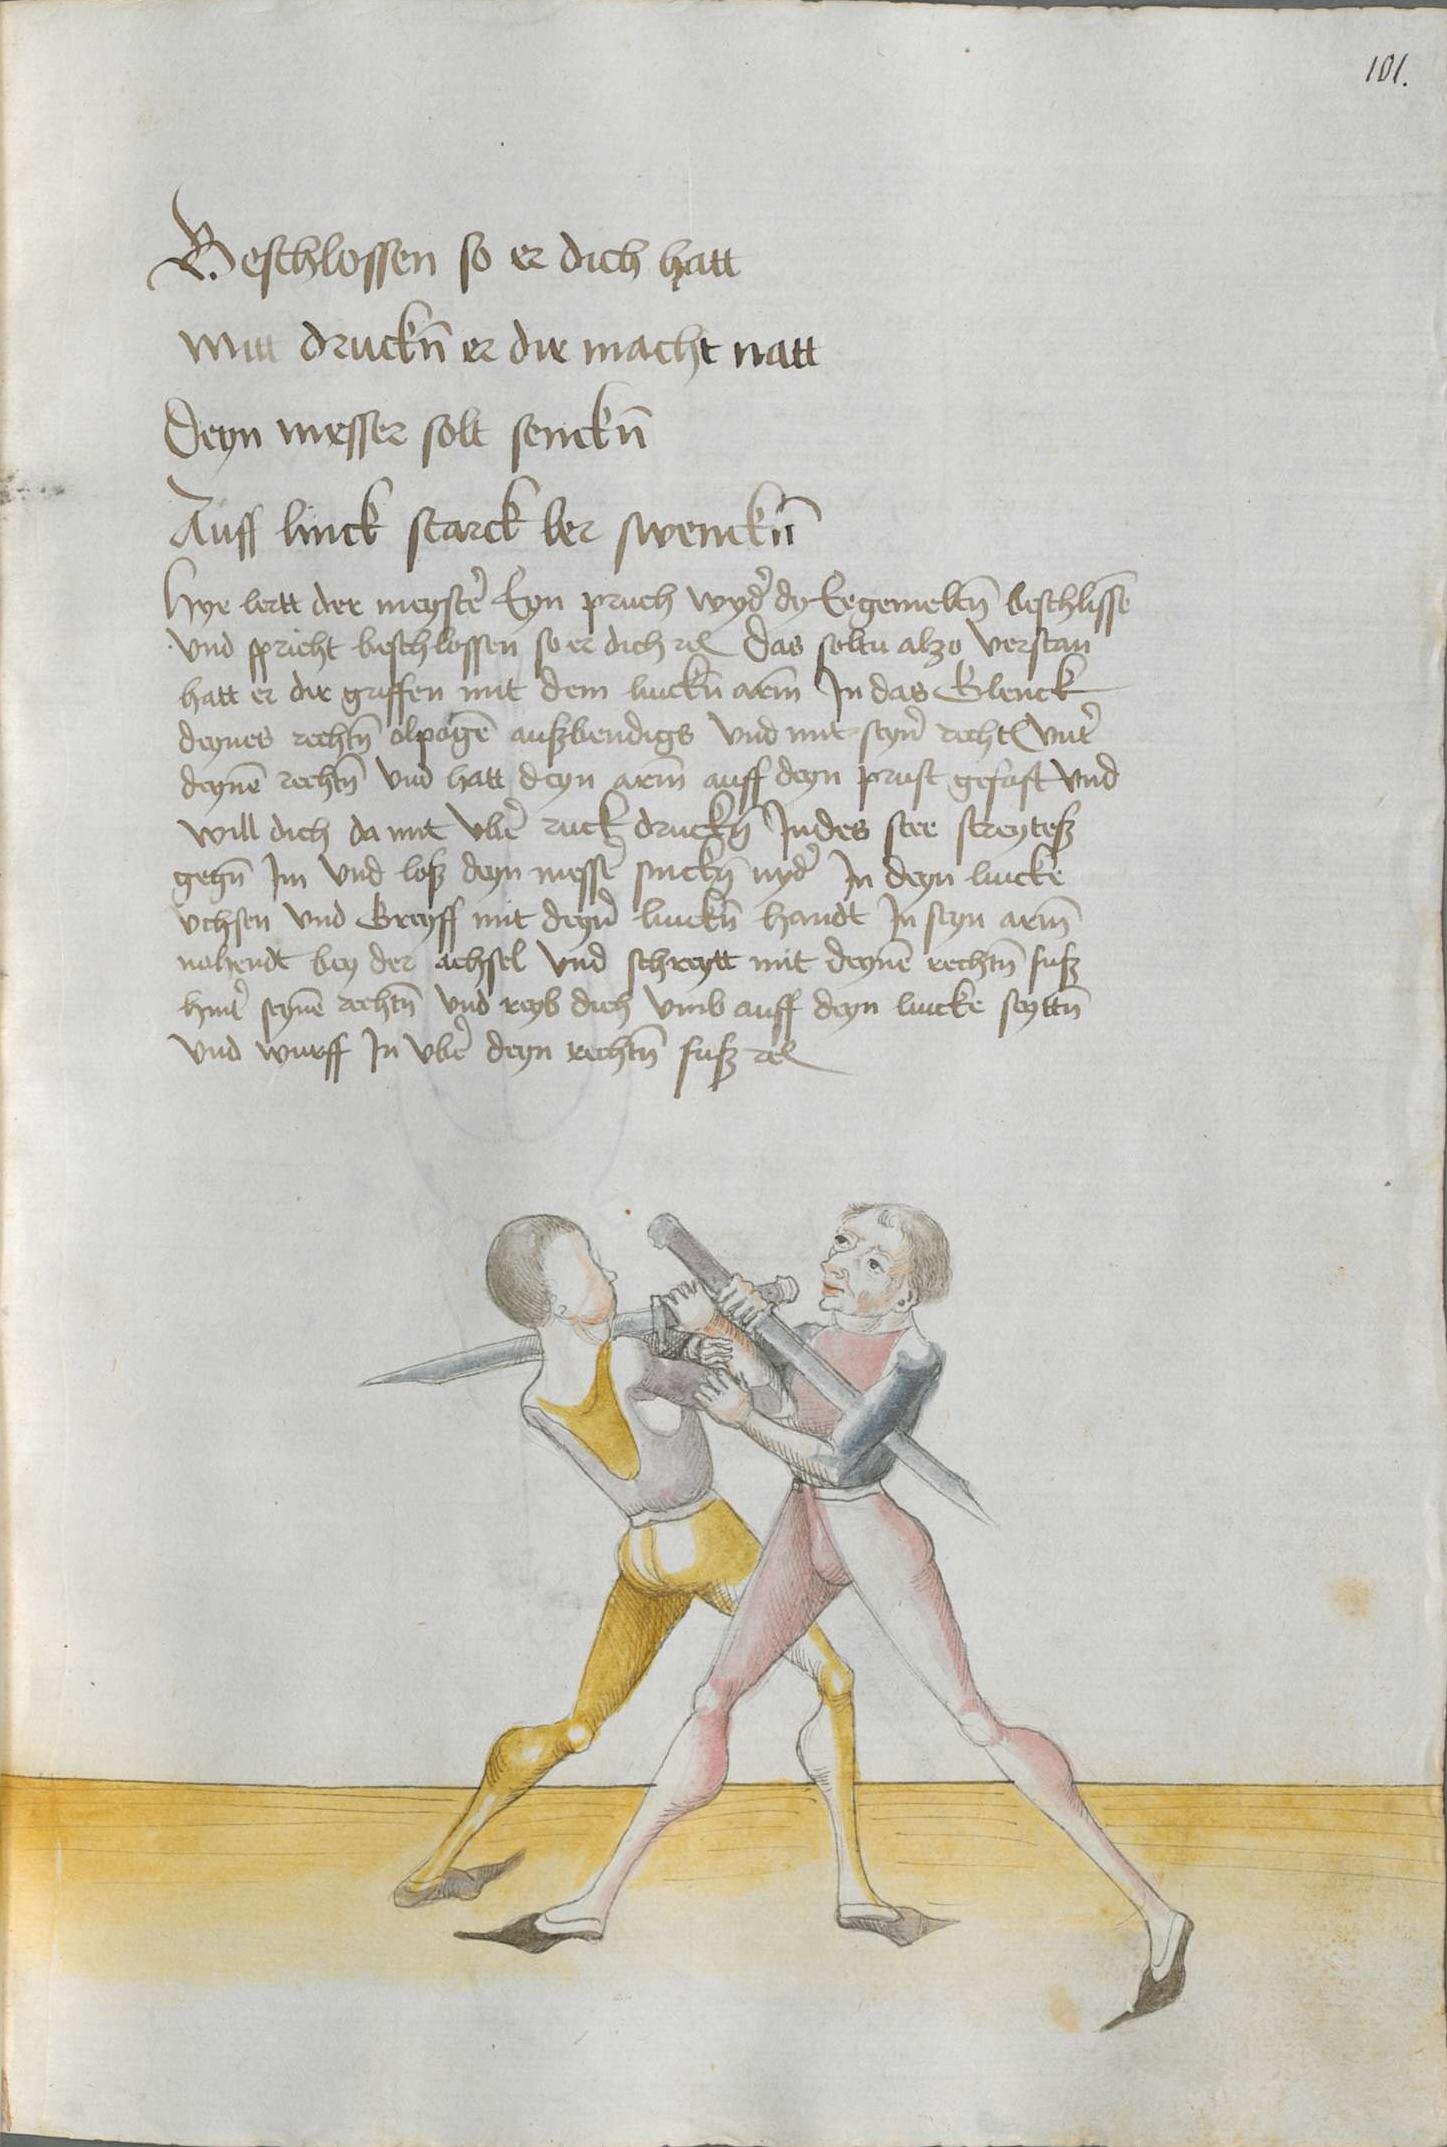 101.
Beschlossen so er dich hatt
Mitt druckn̄ er die macht natt
Deyn messer solt senckn̄
Auff linck starck ber swenckn̄
Hye lertt der meyster̉ Eyn pruch wyd̉ dy Eegemeltn̄ beschliss̄e
und spricht beschlossen so er dich rc Das soltu alzo verstan
hatt er dir griffen mit dem linckn̄ arm̄ In das Glenck
deynes rechtn̄ elpogē außbendigs Und mit seyn̉ recht Unt̉
deynē rechtn̄ Und hatt deyn arm̄ auff deyn prust gefast Und
will dich da mit Ubẻ ruck druckn̄ Indes stee streyteß
gegn̄ Im Und loß deyn mess̉ sinckn̄ nyd̉ In deyn lincke
uchsen Und Greyff mit deyn̉ linckn̄ handt In seyn arm̄
nahendt bey der achsel Und schreytt mit deynē rechtn̄ fuß
hint̉ seynē rechtn̄ Und reyb dich Umb auff deyn lincke seyttn̄
Und wurff In Ubẻ deyn rechtn̄ fuß rc